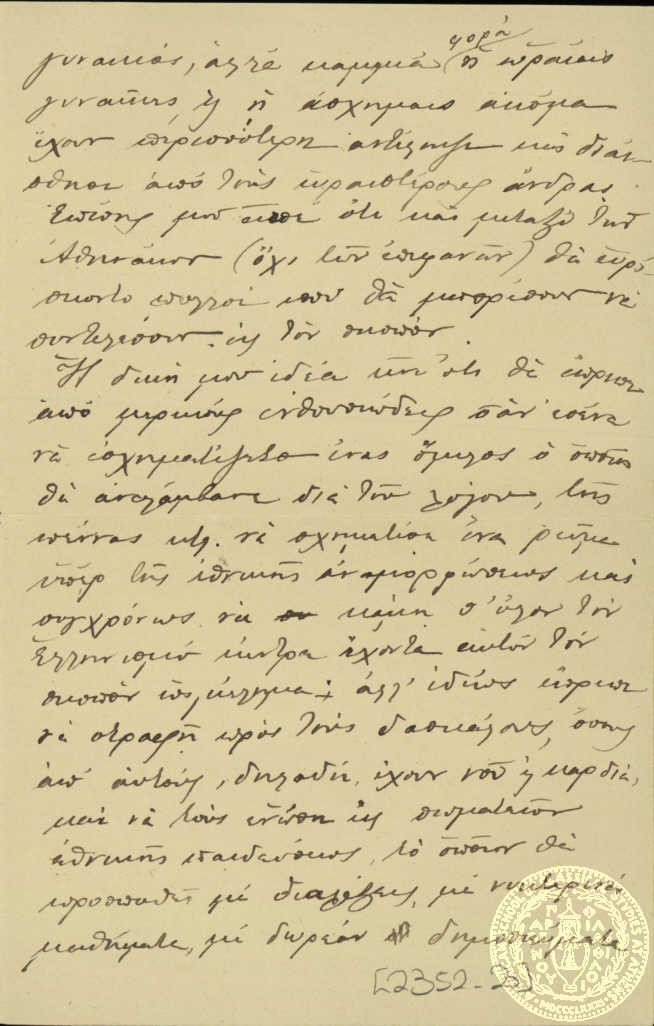 φορά
γυναίκας, ἀλλὰ καμμιὰ ἡ ὡραίαις
γυναῖκες ἢ ἡ ἄσχημαις ἀκόμα
ἔχουν περισσότερη ἀντίληψι καὶ διάι-
σθησι ἀπὸ τοὺς ὡραιοτέρους ἄνδρας.
Ἐπίσης μοῦ εἶπε ὅτι καὶ μεταξὺ τῶν
Ἀθηναίων (ὄχι τῶν ἐπιφανῶν) θὰ εὑρί-
σκοντο πολλοὶ ποῦ θὰ μπορέσουν νὰ
συντελέσουν εἰς τὸν σκοπόν.
Ἡ δική μου ἰδέα εἶνε ὅτι θὰ ἔπρεπε
ἀπὸ μερικοὺς ἐνθουσιώδεις σὰν ἐσένα
νὰ ἐσχηματίζετο ἕνας ὅμιλος ὁ ὁποῖος
θὰ ἀνελάμβανε διὰ τοῦ λόγου, τῆς
πέννας κτλ. νὰ σχηματίσῃ ἕνα ρεῦμα
ὑπὲρ τῆς ἐθνικῆς ἀναμορφώσεως καὶ
συγχρόνως νὰ κάμῃ σ' ὅλον τὸν
Ἑλληνισμὸ κέντρα ἔχοντα αὐτὸν τὸν
σκοπὸν ἀλλ' ἰδίως ἔπρεπε
νὰ στραφῇ πρὸς τοὺς δασκάλους, ὅσους
ἀπ' αὐτούς, δηλαδή, ἔχουν νοῦ ἢ καρδιά,
καὶ νὰ τοὺς ἑνώσῃ εἰς σωματεῖον
ἐθνικῆς παιδεύσεως, τὸ ὁποῖον θὰ
προσπαθῇ μὲ διαλέξεις, μὲ νυκτερινὰ
μαθήματα, μὲ δωρεὰν δημοσιεύματα
[2352-20]